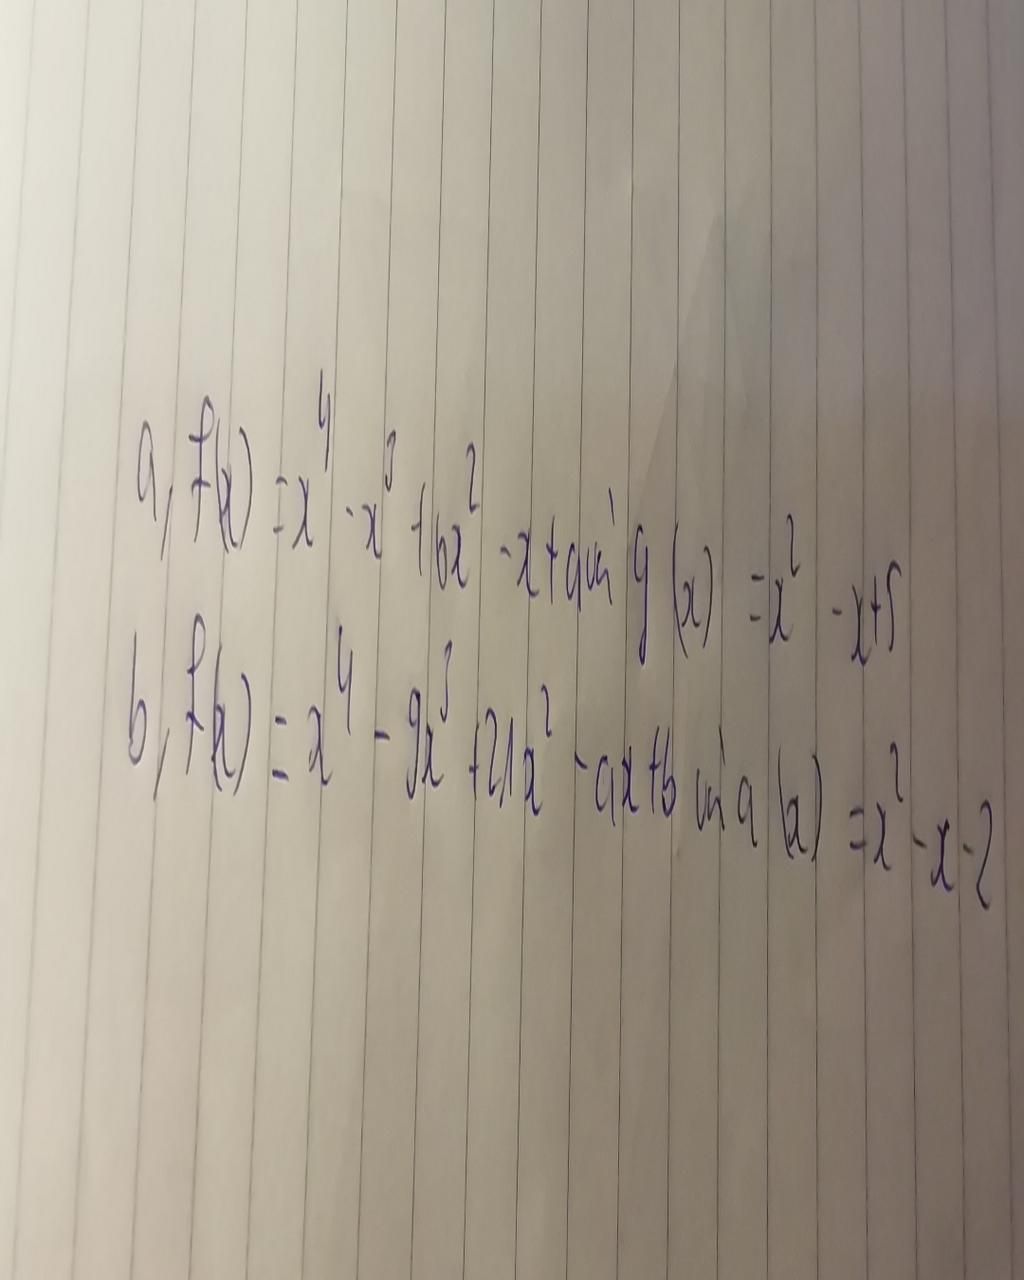 a, f(x) = x⁴ - x³ + 6x² - x + a và g(x) = x² - x + 5
b, f(x) = x⁴ - 9x³ + 21x² - ax + b và g(x) = x² - x - 2